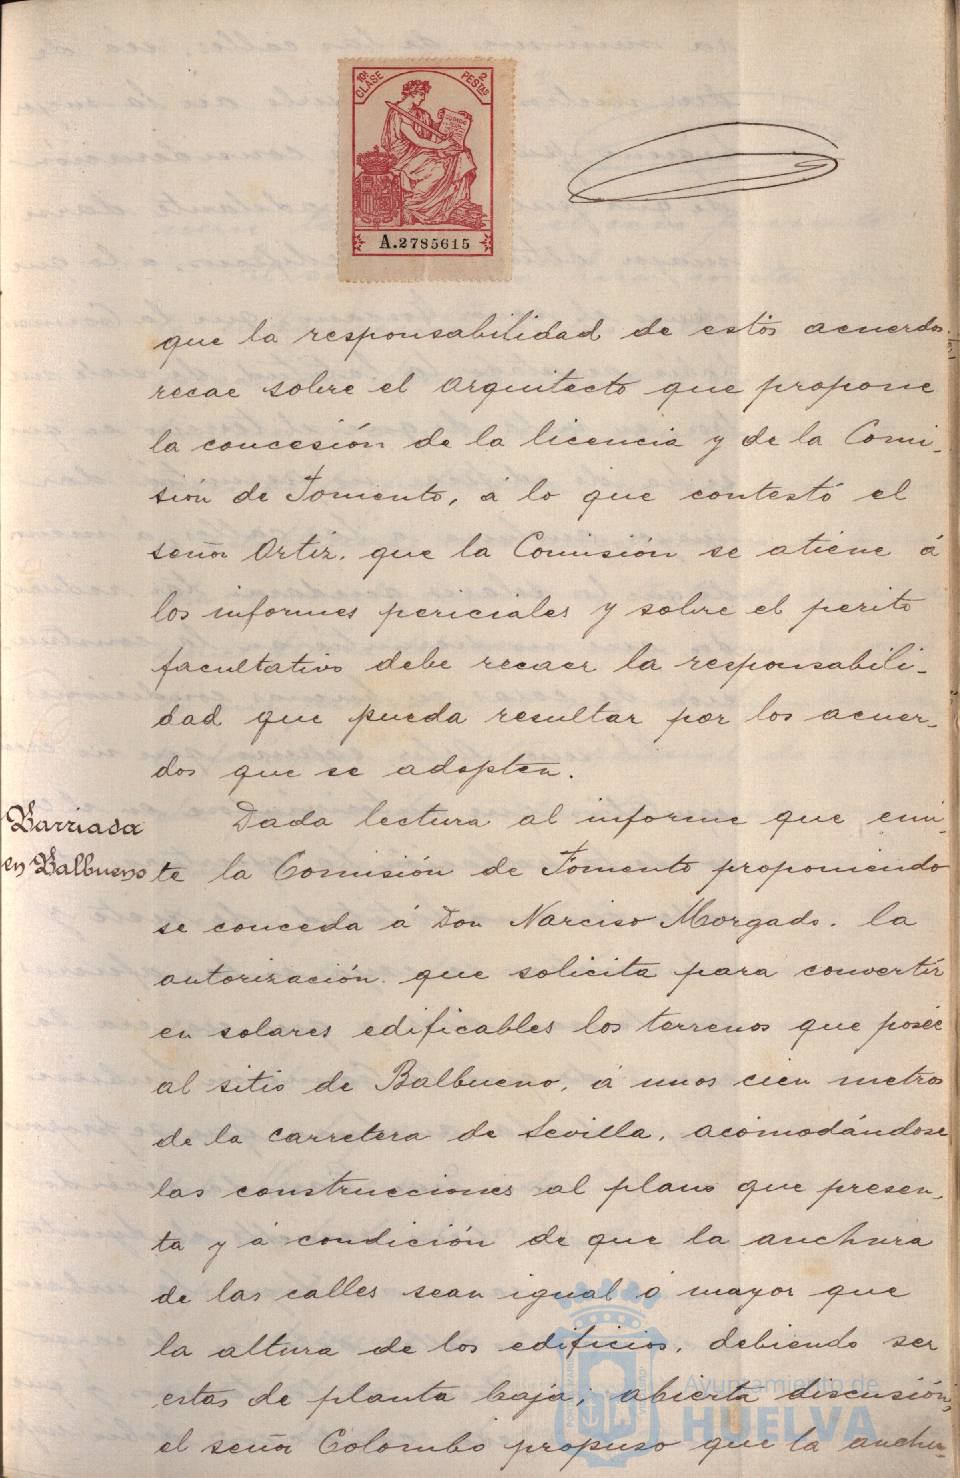 10ª CLASE 2 PESTAS
A.2785615
que la responsabilidad de estos acuerdos
recae sobre el Arquitecto que propone
la concesión de la licencia y de la Comi-
sión de Fomento, á lo que contestó el
señor Ortiz, que la Comisión se atiene á
los informes periciales y sobre el perito
facultativo debe recaer la responsabili-
dad que pueda resultar por los acuer-
dos que se adopten.
Barriada
en Balbueno
Dada lectura al informe que emi-
te la Comisión de Fomento proponiendo
se conceda á Don Narciso Morgado, la
autorización que solicita para convertir
en solares edificables los terrenos que poseé
al sitio de Balbueno, á unos cien metros
de la carretera de Sevilla, acomodándose
las construcciones al plano que presen-
ta y á condición de que la anchura
de las calles sean igual ó mayor que
la altura de los edificios, debiendo ser
estas de planta baja; abierta discusión,
el señor Colombo propuso que la anchu-
Ayuntamiento de
HUELVA